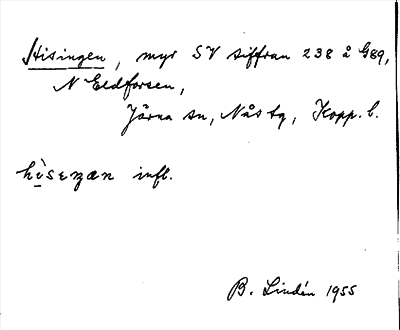 Hisingen, myr SV siffran 238 å G89,
N Eldforsen,
Järna sn, Nås tg, Kopp. l.
hìseŋæn infl.
B. Lindén 1955